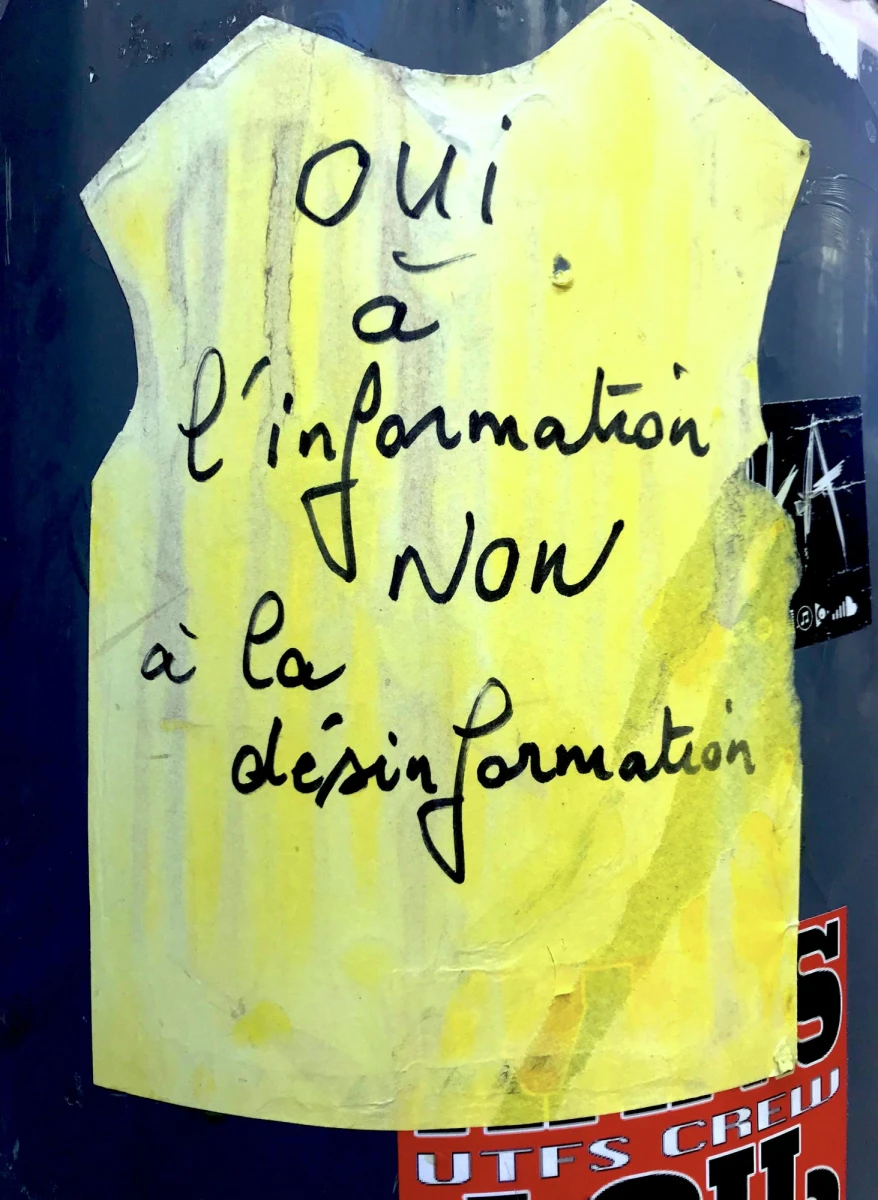 OUI
à
l'information
NON
à la
désinformation
UTFS CREW